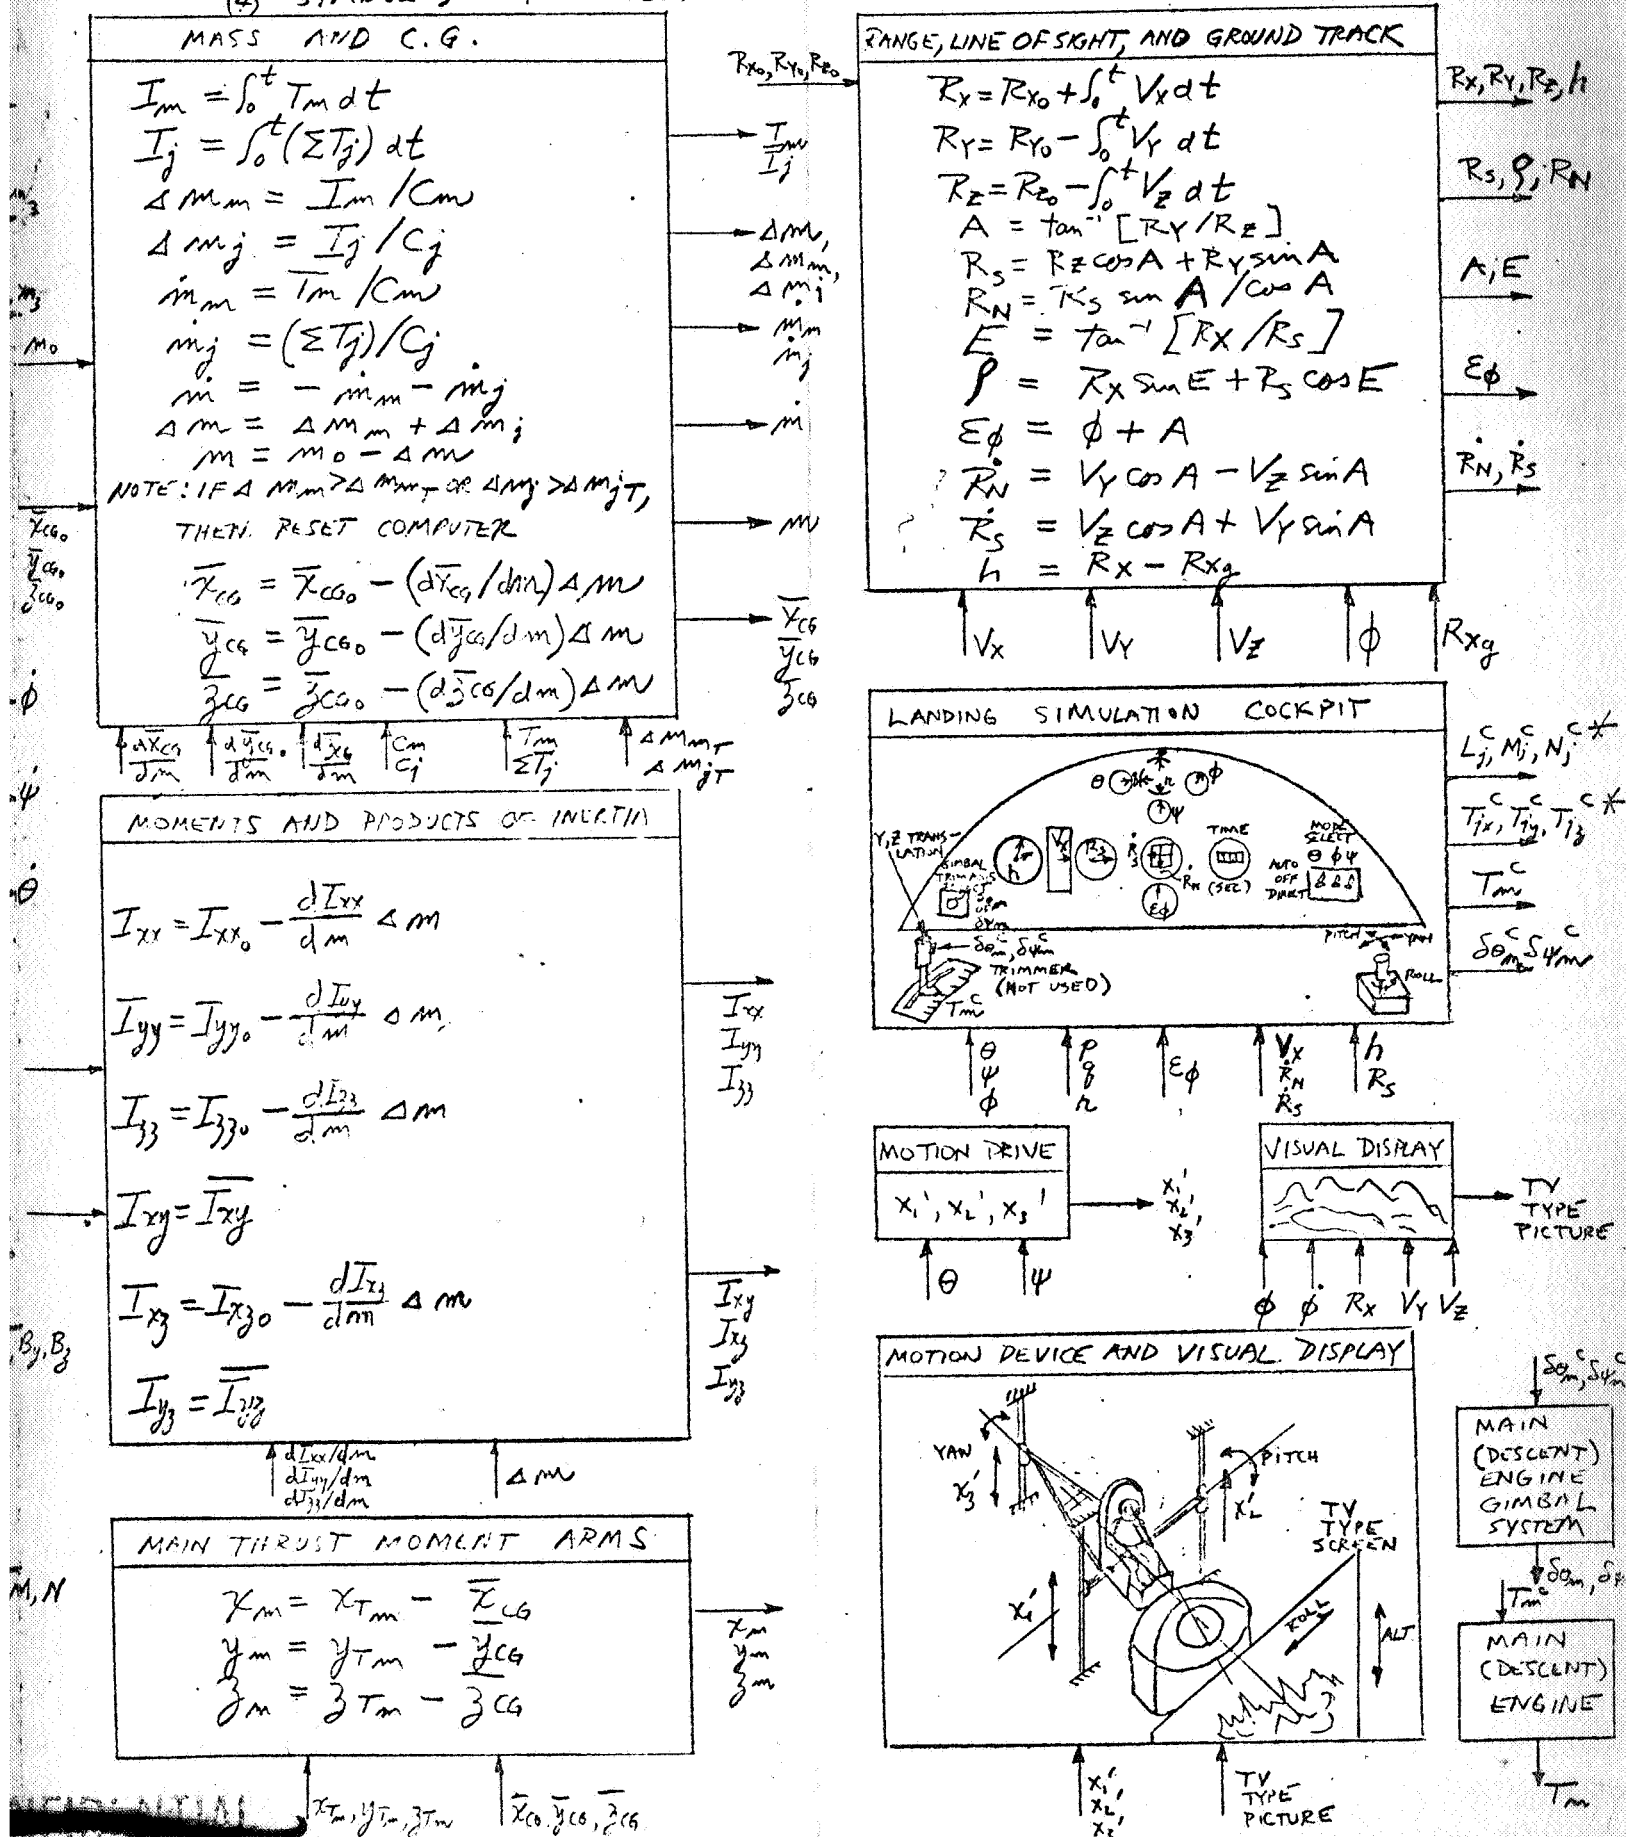 MASS AND C.G.
I_m = ∫₀ᵗ T_m dt
I_j = ∫₀ᵗ (ΣT_j) dt
Δm_m = I_m/C_m
Δm_j = I_j/C_j
ṁ_m = T_m/C_m
ṁ_j = (ΣT_j)/C_j
ṁ = -ṁ_m - ṁ_j
Δm = Δm_m + Δm_j
m = m₀ - Δm
NOTE: IF Δm_m > Δm_mT OR Δm_j > Δm_jT,
THEN RESET COMPUTER
x̄_CG = x̄_CG₀ - (dx̄_CG/dm)Δm
ȳ_CG = ȳ_CG₀ - (dȳ_CG/dm)Δm
z̄_CG = z̄_CG₀ - (dz̄_CG/dm)Δm
m₀
x̄_CG₀
ȳ_CG₀
z̄_CG₀
φ̇
ψ̇
θ̇
I_m
I_j
Δm,
Δm_m,
Δm_j
ṁ_m
ṁ_j
ṁ
m
x̄_CG
ȳ_CG
z̄_CG
dx̄_CG/dm
dȳ_CG/dm
C_m
C_j
T_m
ΣT_j
Δm_mT
Δm_jT
MOMENTS AND PRODUCTS OF INERTIA
I_xx = I_xx₀ - dI_xx/dm Δm
I_yy = I_yy₀ - dI_yy/dm Δm
I_zz = I_zz₀ - dI_zz/dm Δm
I_xy = I̅_xy
I_xz = I_xz₀ - dI_xz/dm Δm
I_yz = I̅_yz
I_xx
I_yy
I_zz
I_xy
I_xz
I_yz
B_y, B_z
dI_xx/dm
dI_yy/dm
dI_zz/dm
Δm
MAIN THRUST MOMENT ARMS
x_m = x_Tm - x̄_CG
y_m = y_Tm - ȳ_CG
z_m = z_Tm - z̄_CG
M, N
x_m
y_m
z_m
x_Tm, y_Tm, z_Tm
x̄_CG, ȳ_CG, z̄_CG
R_X₀, R_Y₀, R_Z₀
RANGE, LINE OF SIGHT, AND GROUND TRACK
R_X = R_X₀ + ∫₀ᵗ V_X dt
R_Y = R_Y₀ - ∫₀ᵗ V_Y dt
R_Z = R_Z₀ - ∫₀ᵗ V_Z dt
A = tan⁻¹ [R_Y/R_Z]
R_S = R_Z cos A + R_Y sin A
R_N = R_S sin A / cos A
E = tan⁻¹ [R_X/R_S]
ρ = R_X sin E + R_S cos E
ε_φ = φ + A
Ṙ_N = V_Y cos A - V_Z sin A
Ṙ_S = V_Z cos A + V_Y sin A
h = R_X - R_Xg
R_X, R_Y, R_Z, h
R_S, ρ, R_N
A, E
ε_φ
Ṙ_N, Ṙ_S
V_X
V_Y
V_Z
φ
R_Xg
LANDING SIMULATION COCKPIT
θ
r
φ
ψ
Y, Z TRANS-
LATION
GIMBAL
h
V_X
R_S
Ṙ_S
Ṙ_N
ε_φ
TIME
(SEC)
MODE
SELECT
θ φ ψ
AUTO
OFF
DIRECT
δθ_m^C, δψ_m^C
TRIMMER
(NOT USED)
T_m^C
PITCH
YAW
ROLL
L_j^C, M_j^C, N_j^C *
T_jx^C, T_jy^C, T_jz^C *
T_m^C
δθ_m^C, δψ_m^C
θ
ψ
φ
p
q
r
ε_φ
V_X
Ṙ_N
Ṙ_S
h
R_S
MOTION DRIVE
x₁', x₂', x₃'
x₁'
x₂'
x₃'
θ
ψ
VISUAL DISPLAY
TV
TYPE
PICTURE
φ φ̇ R_X V_Y V_Z
MOTION DEVICE AND VISUAL DISPLAY
YAW
x₃'
PITCH
x₂'
TV
TYPE
SCREEN
x₁'
ROLL
ALT
x₁'
x₂'
TV
TYPE
PICTURE
δθ_m^C, δψ_m^C
MAIN
(DESCENT)
ENGINE
GIMBAL
SYSTEM
T_m^C
MAIN
(DESCENT)
ENGINE
T_m